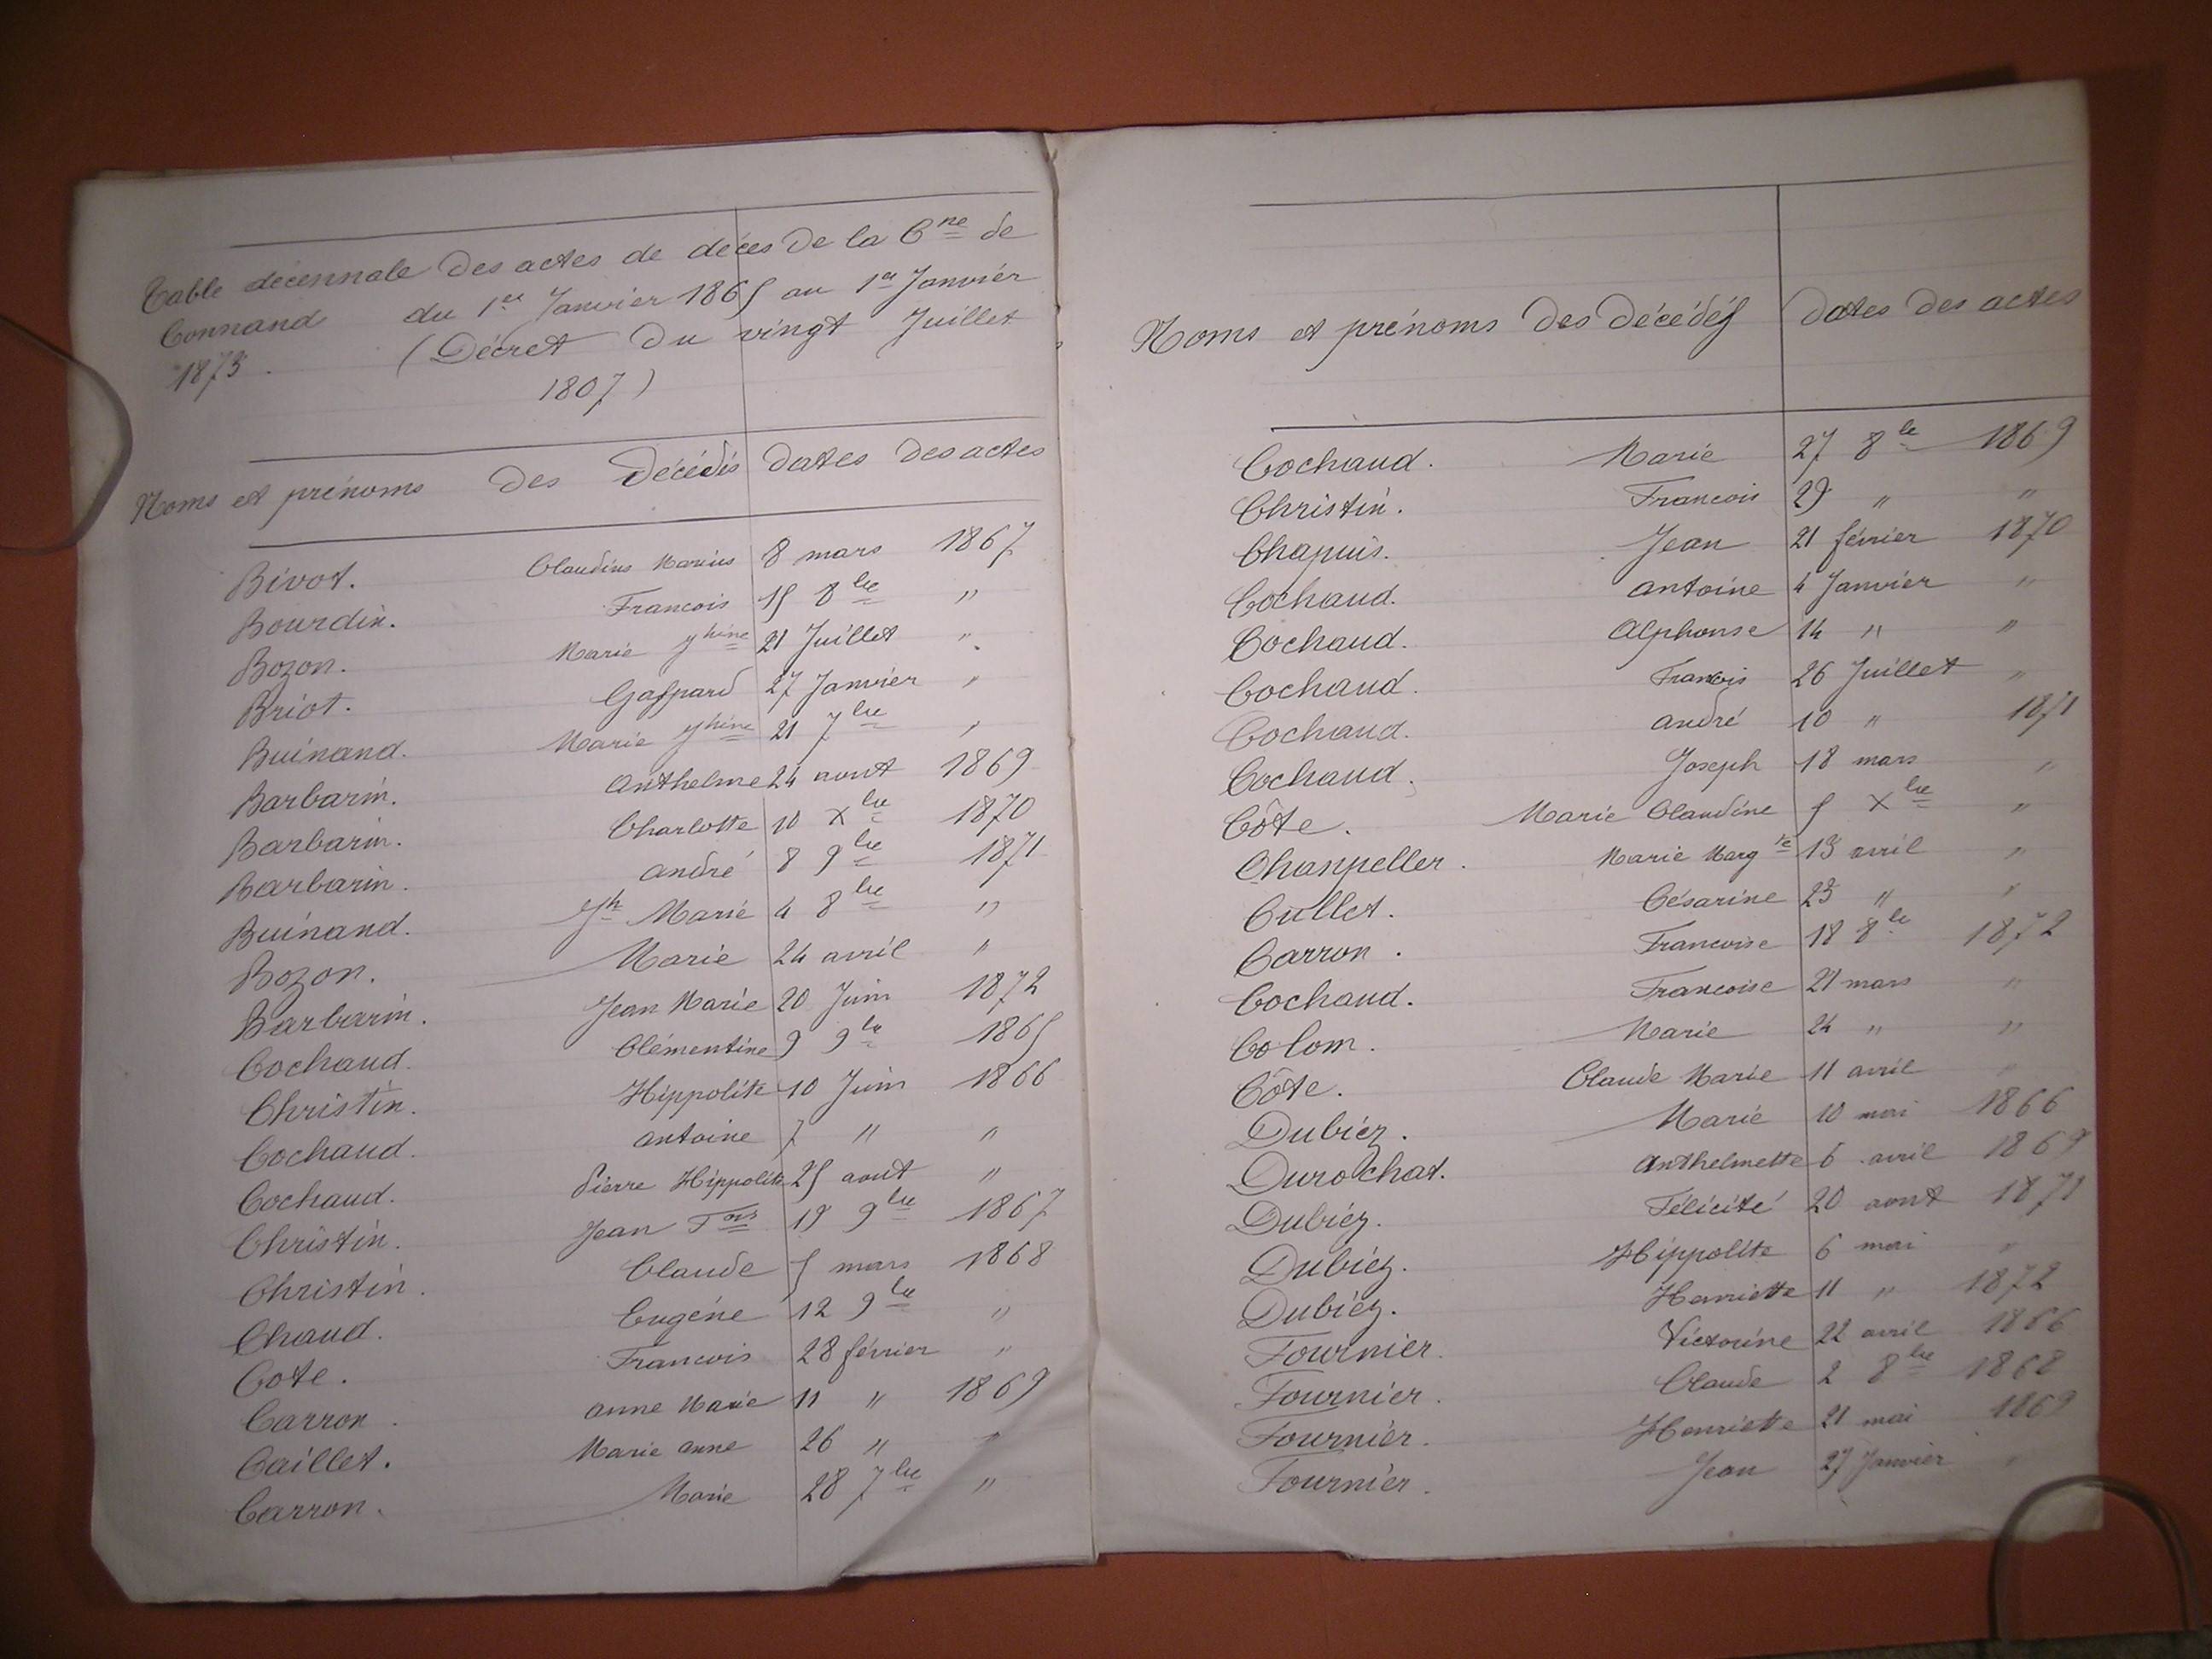 Table décennale des actes de décès de la Cne de
Connand du 1er Janvier 1865 au 1er Janvier
1873. (Décret du vingt Juillet
1807)
Noms et prénoms des Décédés dates des actes
Bivot. Claudius Marius 8 mars 1867
Bourdin. Francois 15 8bre "
Bozon. Marie Jhine 21 Juillet "
Briot. Gaspard 27 Janvier "
Buinand. Marie Jhine 21 7bre "
Barbarin. Anthelme 24 aout 1869
Barbarin. Charlotte 10 Xbre 1870
Barbarin. andré 8 9bre 1871
Buinand. Jh Marie 4 8bre "
Bozon. Marie 24 avril "
Barbarin. Jean Marie 20 Juin 1872
Cochaud. Clémentine 9 9bre 1865
Christin. Hippolite 10 Juin 1866
Cochaud. antoine 7 " "
Cochaud. Pierre Hippolite 25 aout "
Christin. Jean Fois 19 9bre 1867
Christin. Claude 5 mars 1868
Chaud. Eugéne 12 9bre "
Cote. Francois 28 février "
Carron. anne Marie 11 " 1869
Caillet. Marie anne 26 " "
Carron. Marie 28 7bre "
Noms et prénoms des Décédés dates des actes
Cochaud. Marie 27 8bre 1869
Christin. Francois 29 " "
Chapuis. Jean 21 février 1870
Cochaud. antoine 4 Janvier "
Cochaud. Alphonse 14 " "
Cochaud. Francois 26 Juillet "
Cochaud. andré 10 " 1871
Cochaud. Joseph 18 mars "
Côte. Marie Claudine 5 Xbre "
Chanpeller. Marie Margte 13 avril "
Cullet. Césarine 23 " "
Carron. Francoise 18 8bre 1872
Cochaud. Francoise 21 mars "
Colom. Marie 24 " "
Côte. Claude Marie 11 avril "
Dubiez. Marie 10 mai 1866
Durochat. Anthelmette 6 avril 1869
Dubiez. Félicité 20 aout 1871
Dubiez. Hippolite 6 mai "
Dubiez. Henriette 11 " 1872
Fournier. Victorine 22 avril 1866
Fournier. Claude 2 8bre 1868
Fournier. Henriette 21 mai 1869
Fournier. Jean 27 Janvier "